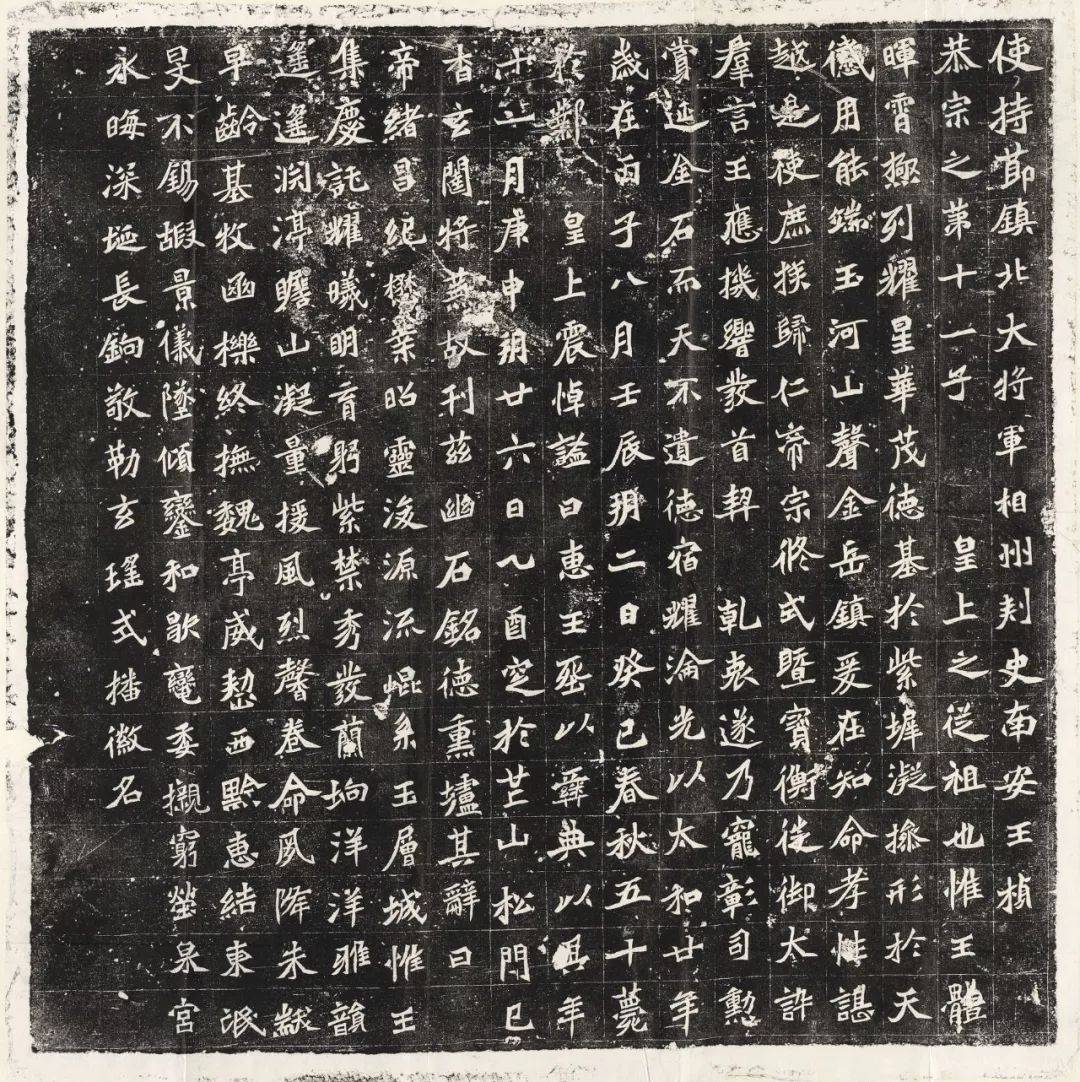 使持節鎮北大將軍相州刾史南安王楨
恭宗之第十一子 皇上之從祖也惟王體
暉霄極列耀星華茂德基於紫墀凝操形於天
感用能端玉河山聲金岳鎮爰在知命孝性諶
越是使庶族歸仁帝宗攸式暨寶衡徙御大訏
羣言王應機響發首契 乹衷遂乃寵彰司勳
賞延金石而天不遺德宿耀淪光以太和廿年
歲在丙子八月壬辰朔二日癸巳春秋五十薨
於鄴 皇上震悼謚曰惠王葬以彝典以其年
十一月庚申朔廿六日乙酉窆於芒山松門已
杳玄闥將蕪故刊茲幽石銘德熏壚其辭曰
帝緒昌紀懋業昭靈浚源流崐系玉層城惟王
集慶託耀曦明育躬紫禁秀發蘭坰洋洋雅韻
遥遥淵渟瞻山凝量援風烈馨卷命夙降朱黻
早齡基牧函櫟終撫魏亭威整西黔惠結東氓
旻不錫嘏景儀墜傾鑾和歇轙委櫬窮塋泉宮
永晦深埏長鋾敬勒玄瑤式播徽名